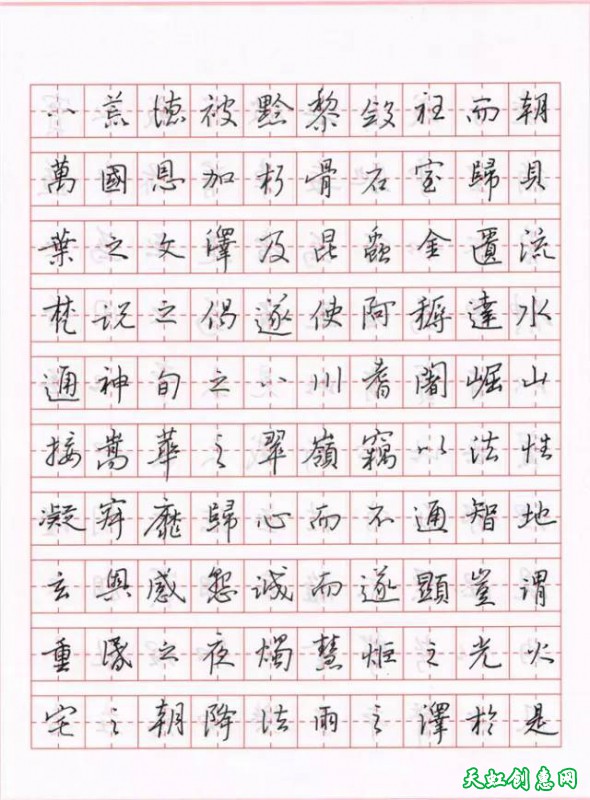 八荒德被黔黎斂衽而朝
萬國恩加朽骨石室歸貝
葉之文澤及昆蟲金匱流
梵説之偈遂使阿耨達水
通神甸之八川耆闍崛山
接嵩華之翠嶺竊以法性
凝寂靡歸心而不通智地
玄奧感懇誠而遂顯豈謂
重昏之夜燭慧炬之光火
宅之朝降法雨之澤於是
天虹创意网